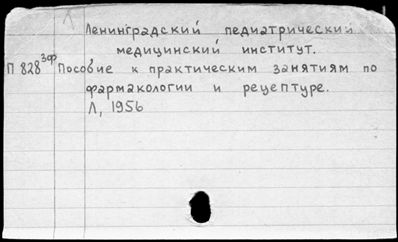 Ленинградский педиатрический
медицинский институт.
П 828 3ф Пособие к практическим занятиям по
фармакологии и рецептуре.
Л, 1956